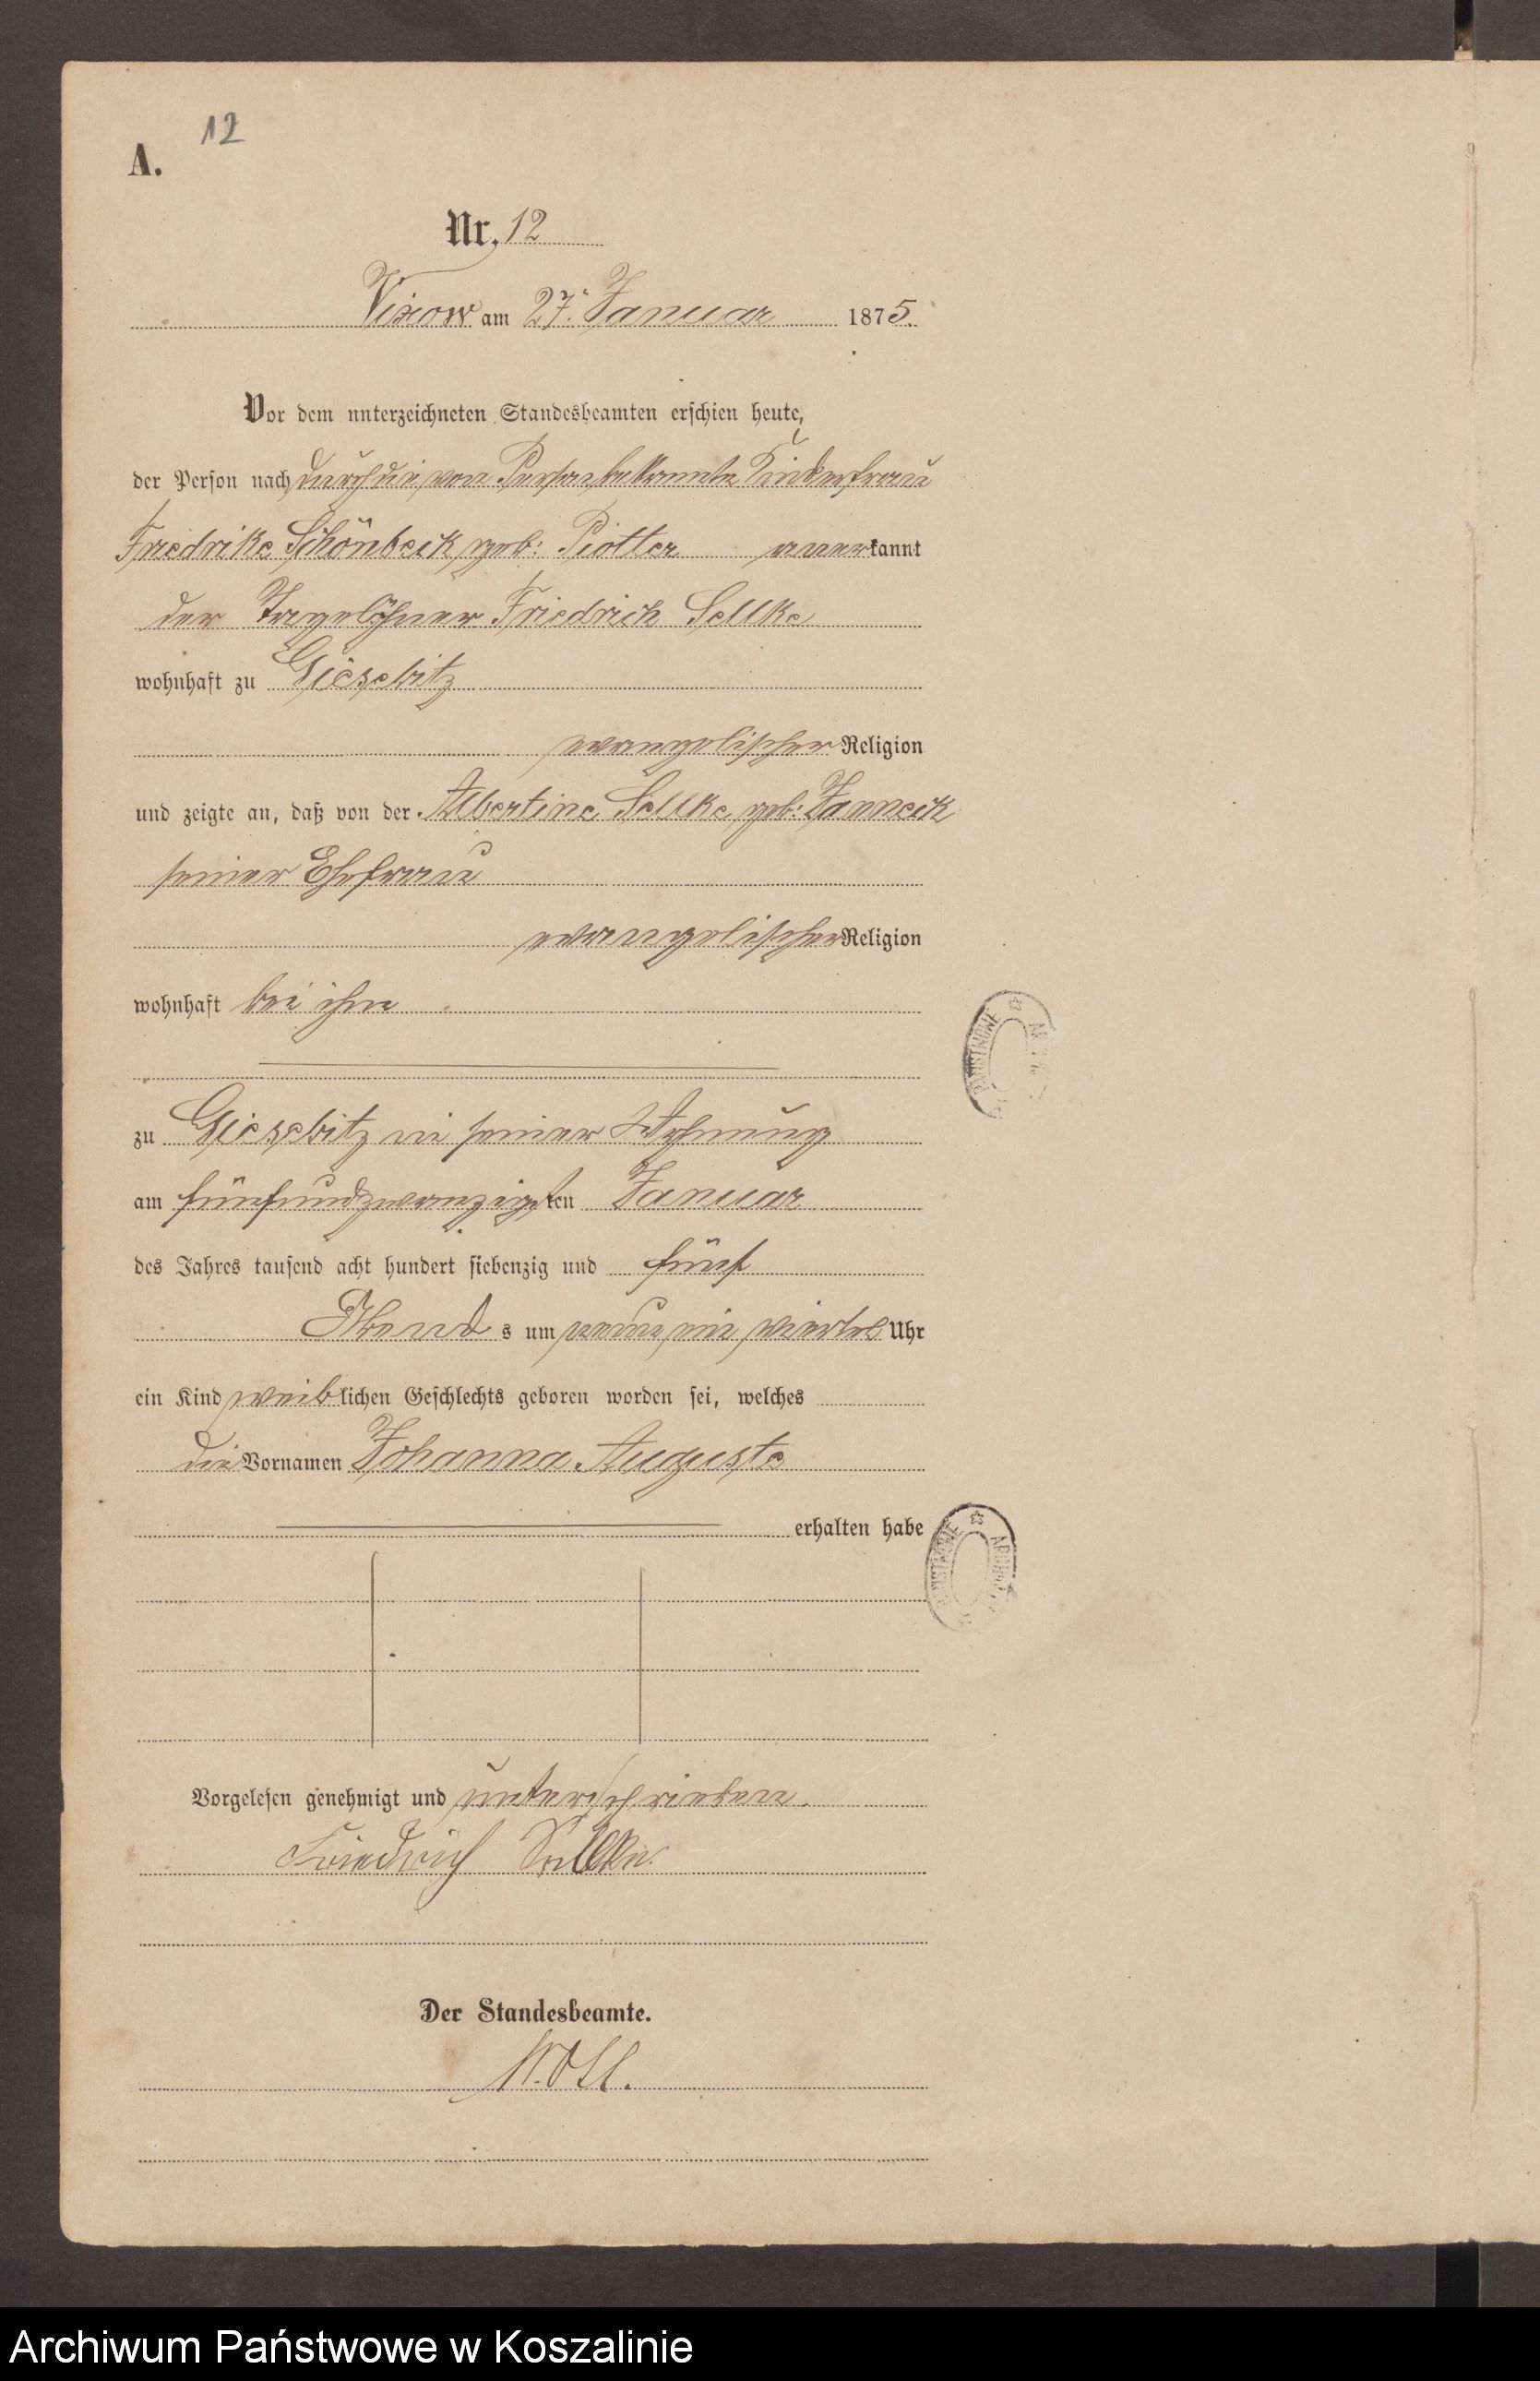 12
A.
Nr. 12
Vixow am 27. Januar 1875.
Vor dem unterzeichneten Standesbeamten erschien heute,
der Person nach durch die von Person bekannte Kinderfrau
Friedrike Schönbeck geb: Piotter anerkannt
der Tagelöhner Friedrich Sellke
wohnhaft zu Giesebitz
evangelischer Religion
und zeigte an, daß von der Albertine Sellke geb: Janneck
seiner Ehefrau
evangelischer Religion
wohnhaft bei ihm
zu Giesebitz in seiner Wohnung
am fünfundzwanzigsten Januar
des Jahres tausend acht hundert siebenzig und fünf
Abends um neun ein viertel Uhr
ein Kind weiblichen Geschlechts geboren worden sei, welches
die Vornamen Johanna Auguste
erhalten habe
Vorgelesen genehmigt und unterschrieben.
Friedrich Sellke.
Der Standesbeamte.
Archiwum Państwowe w Koszalinie